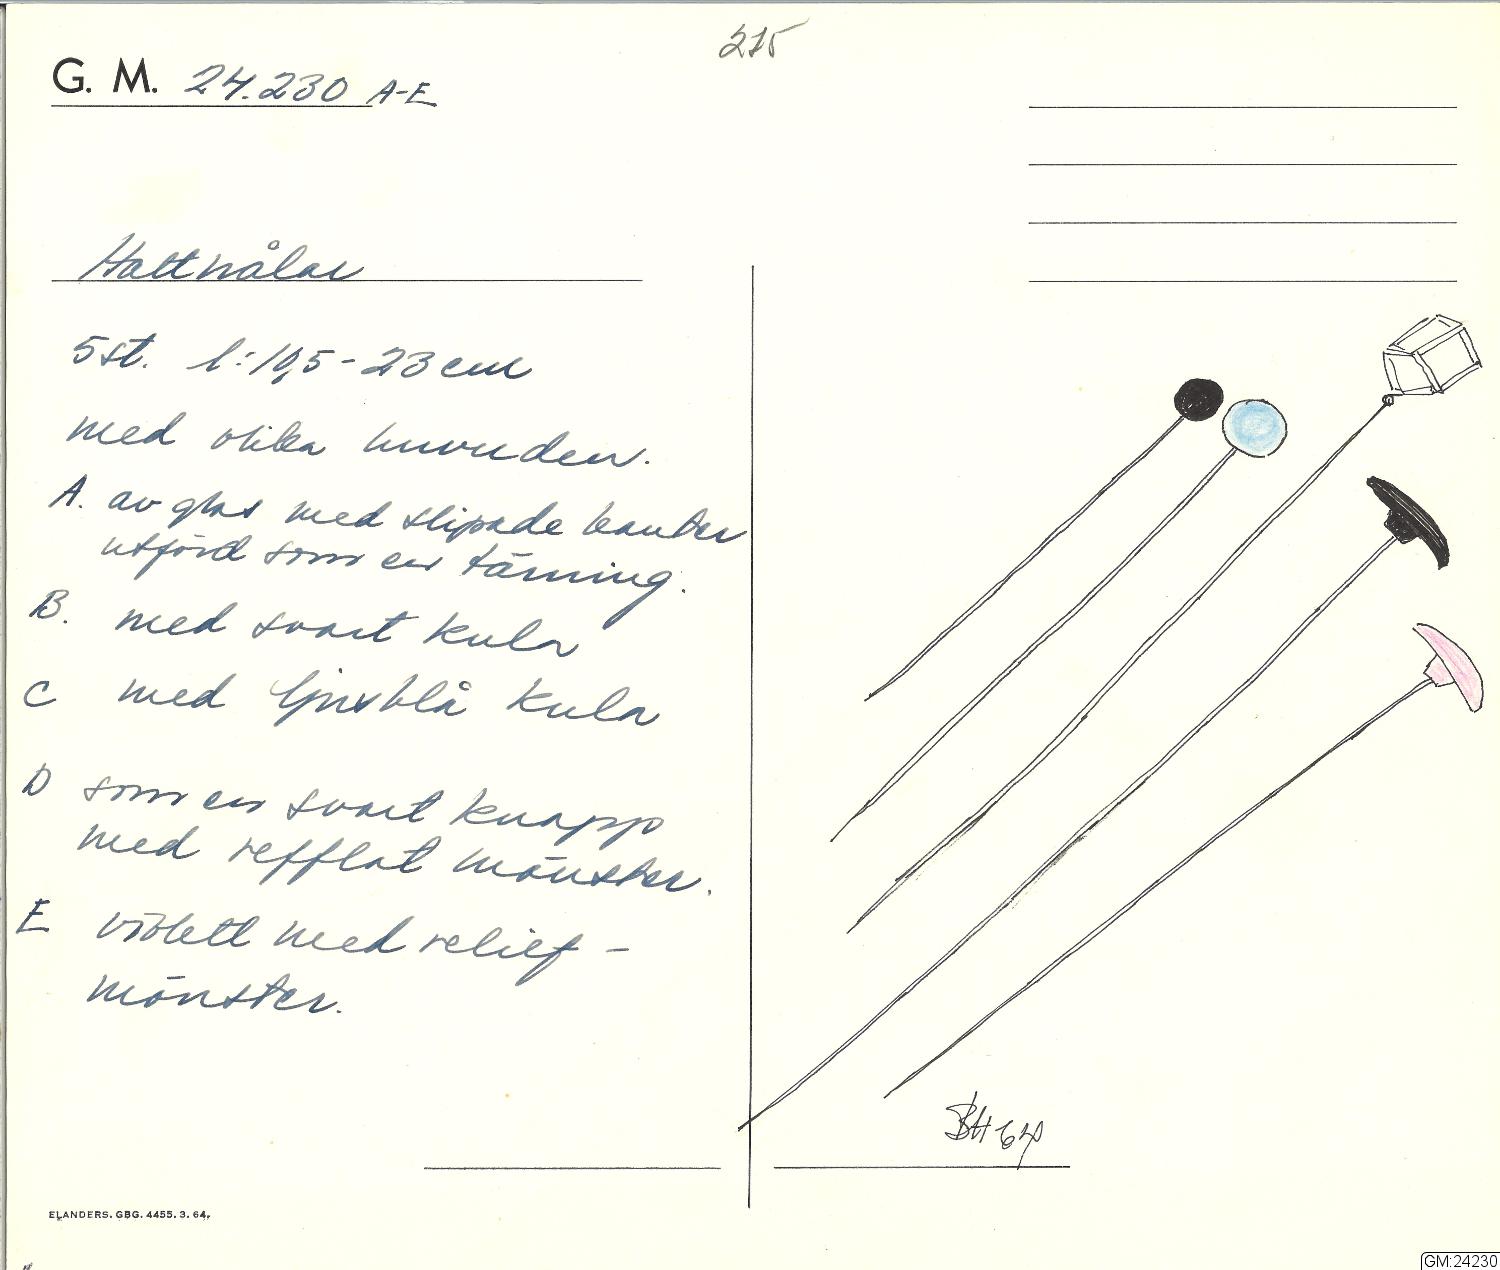 215
G. M. 24.230 A-E
Hattnålar
5st. l:10,5-23 cm
med olika huvuden.
A. av glas med slipade kanter
utförd som en tärning.
B. med svart kula
C med ljusblå kula
D som en svart knapp
med refflat mönster.
E violett med relief-
mönster.
BH 64
ELANDERS. GBG. 4455. 3. 64.
GM:24230